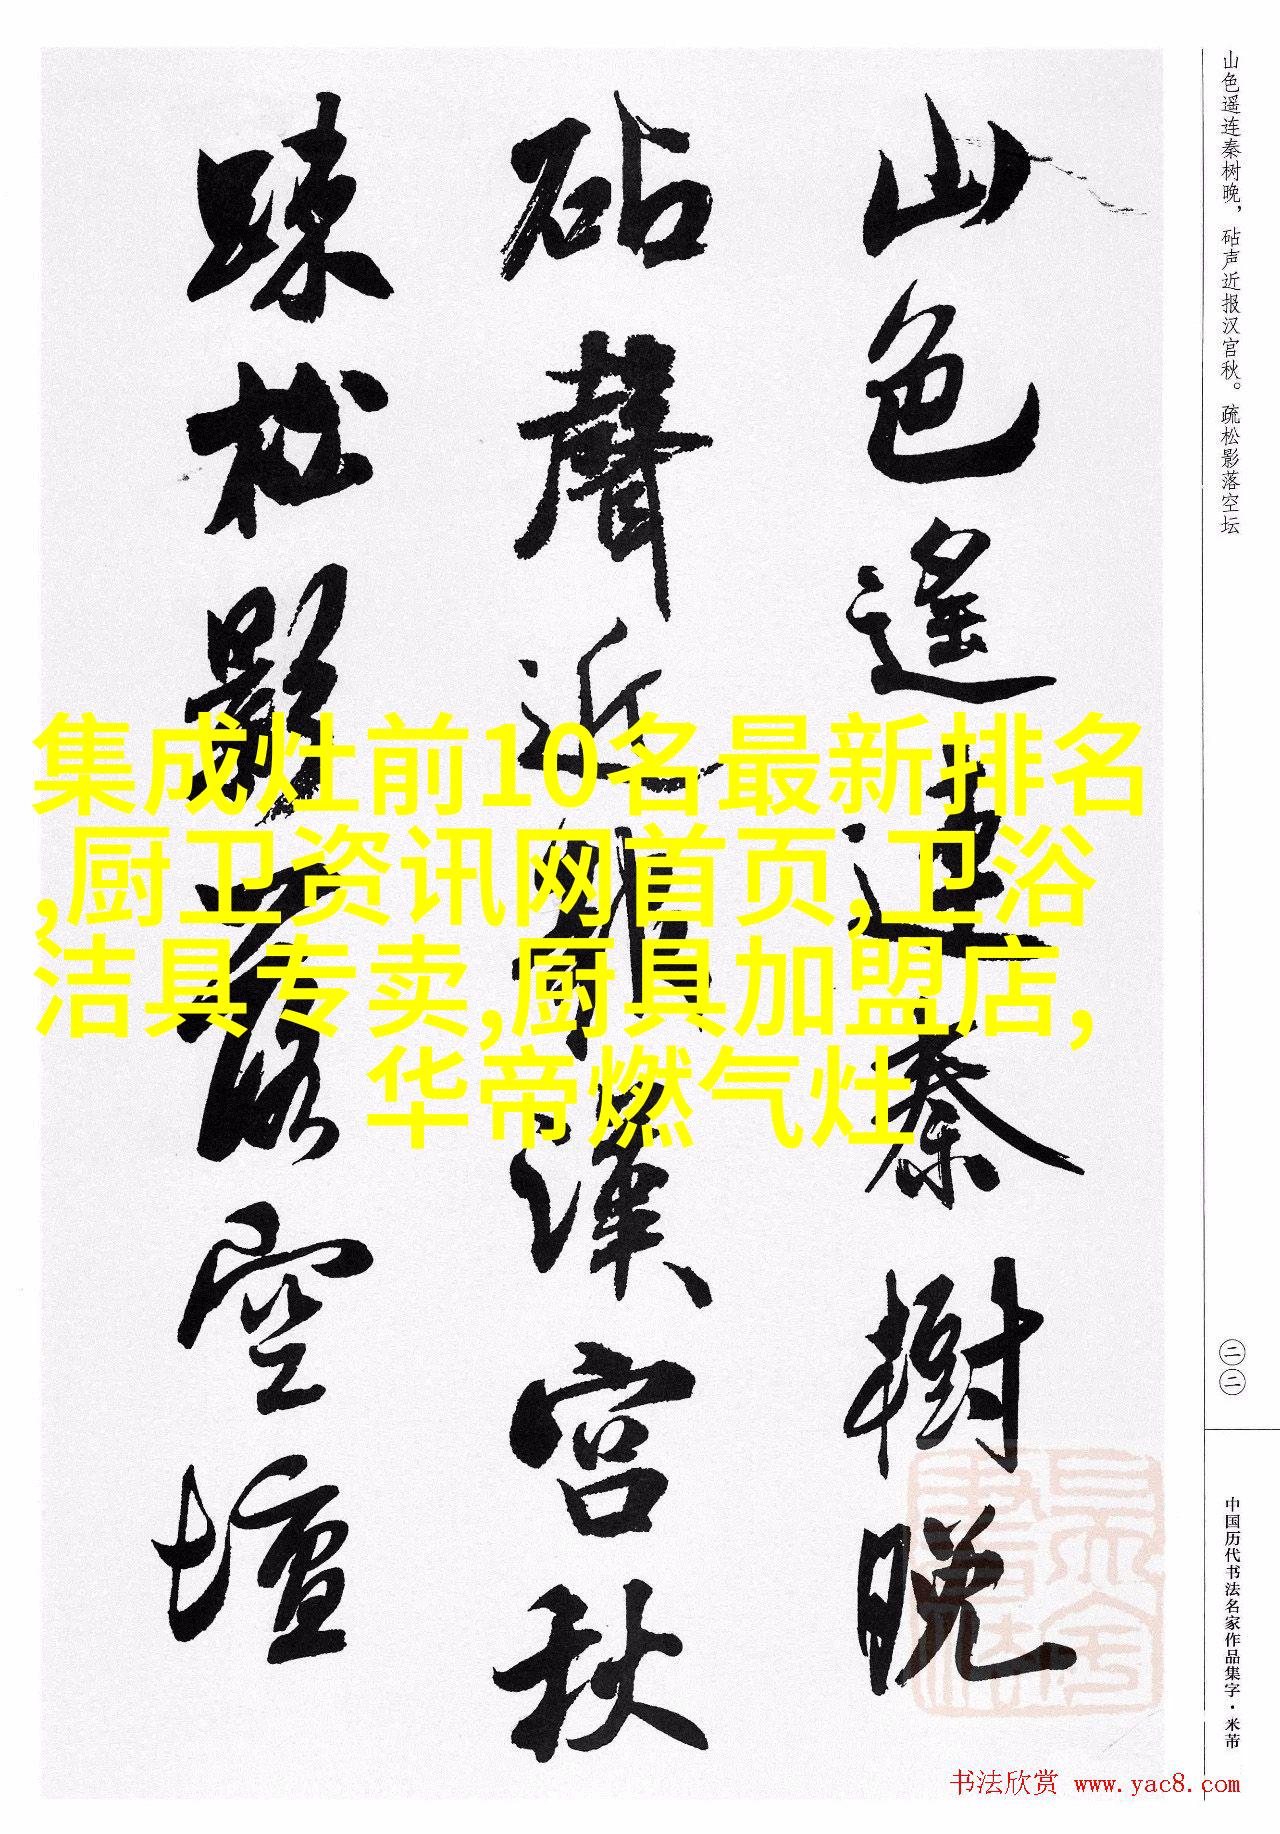 山色遥连秦树晚，砧声近报汉宫秋。疏松影落空坛
山色遙連秦樹晚
砧聲近報漢宮秋
踈松影落空壇
集成灶前10名最新排名
,厨卫资讯网首页,卫浴
洁具专卖,厨具加盟店,
华帝燃气灶
二二
中国历代书法名家作品集字·米芾
书法欣赏 www.yac8.com